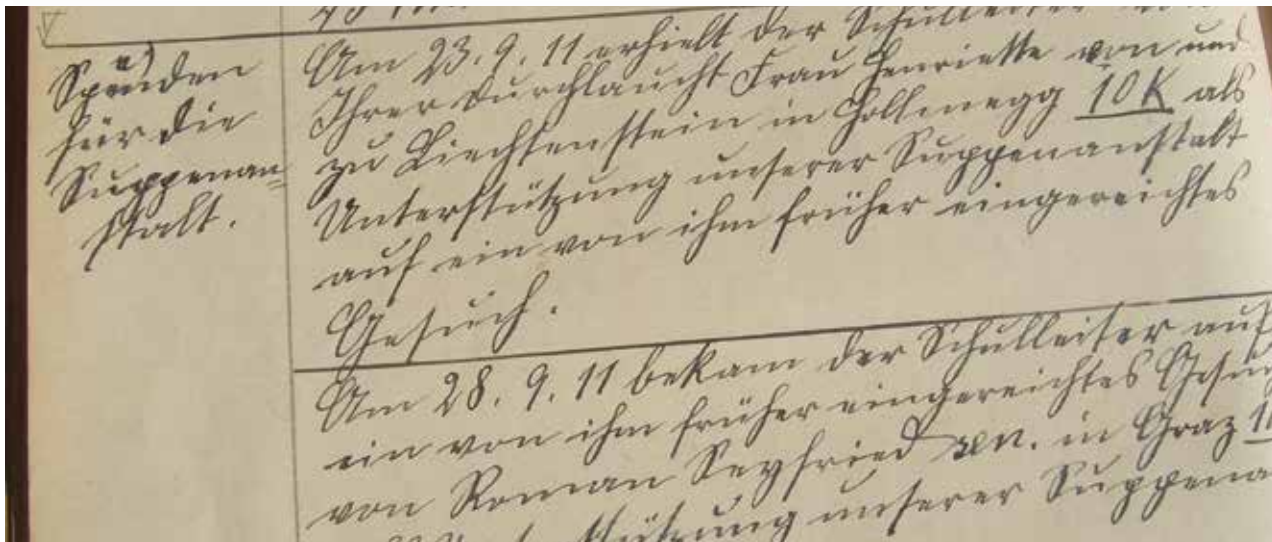 Spenden
für die
Suppenan=
stalt.
Am 23. 9. 11 erhielt der Schulleiter von
Ihrer Durchlaucht Frau Henriette von und
zu Liechtenstein in Hollenegg 10 K als
Unterstützung unserer Suppenanstalt
auf ein von ihm früher eingereichtes
Gesuch.
Am 28. 9. 11 bekam der Schulleiter auf
ein von ihm früher eingereichtes Gesuch
von Roman Seyfried sen. in Graz
unserer